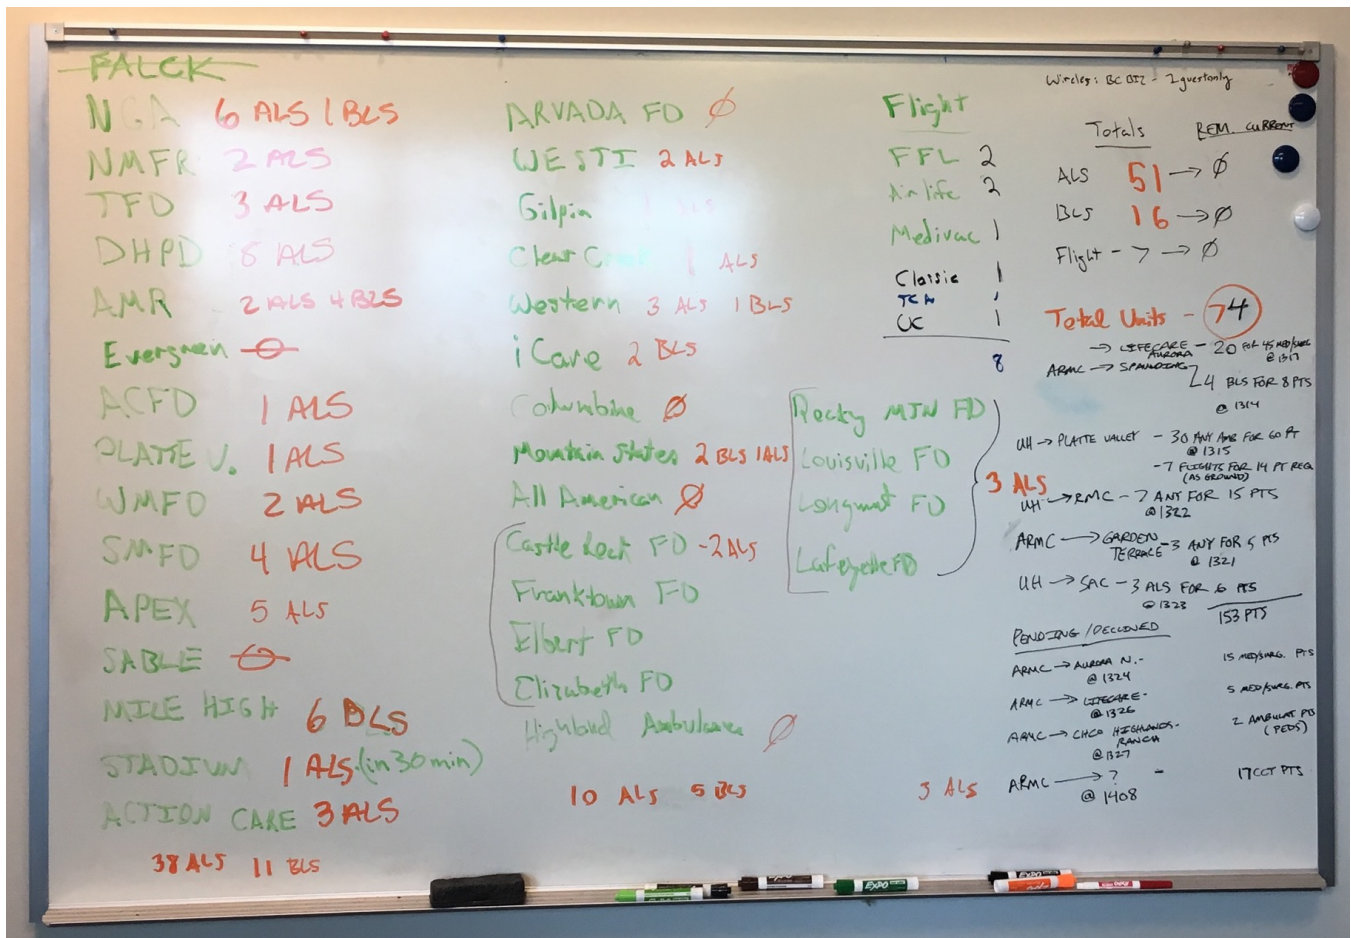 FALCK
NGA 6 ALS 1 BLS
NMFR 2 ALS
TFD 3 ALS
DHPD 8 ALS
AMR 2 ALS 4 BLS
Evergreen
ACFD 1 ALS
PLATTE V. 1 ALS
WMFD 2 ALS
SMFD 4 ALS
APEX 5 ALS
SABLE
MILE HIGH 6 BLS
STADIUM 1 ALS (in 30 min)
ACTION CARE 3 ALS
38 ALS 11 BLS
ARVADA FD Ø
WESTI 2 ALS
Gilpin 1 ALS
Clear Creek 1 ALS
Western 3 ALS 1 BLS
i Care 2 BLS
Columbine Ø
Mountain States 2 BLS 1 ALS
All American Ø
Castle Rock FD - 2 ALS
Franktown FD
Elbert FD
Elizabeth FD
Highland Ambulance Ø
10 ALS 5 BLS
Flight
FFL 2
Airlife 2
Medivac 1
Classic 1
UC 1
8
Rocky MTN FD
Louisville FD
Longmont FD
Lafayette FD
3 ALS
3 ALS
Wireless: BCBIZ - 2guestonly
Totals REM. CURRENT
ALS 51 → Ø
BLS 16 → Ø
Flight - 7 → Ø
Total Units - 74
→ LIFECARE AURORA - 20 FOR 45 MED/SURG
@ 1317
ARMC → SPAULDING
4 BLS FOR 8 PTS
@ 1314
UH → PLATTE VALLEY - 30 ANY AMB FOR 60 PT
@ 1315
- 7 FLIGHTS FOR 14 PT REQ
(AS GROUND)
UH → RMC - 7 ANY FOR 15 PTS
@ 1322
ARMC → GARDEN TERRACE - 3 ANY FOR 5 PTS
@ 1321
UH → SAC - 3 ALS FOR 6 PTS
@ 1323
153 PTS
PENDING / DECLINED
ARMC → AURORA N. - 15 MED/SURG. PTS
@ 1324
ARMC → LIFECARE - 5 MED/SURG. PTS
@ 1326
ARMC → CHCO HIGHLANDS RANCH - 2 AMBULAT PT
(PEDS)
@ 1327
ARMC → ? - 17 CCT PTS
@ 1408